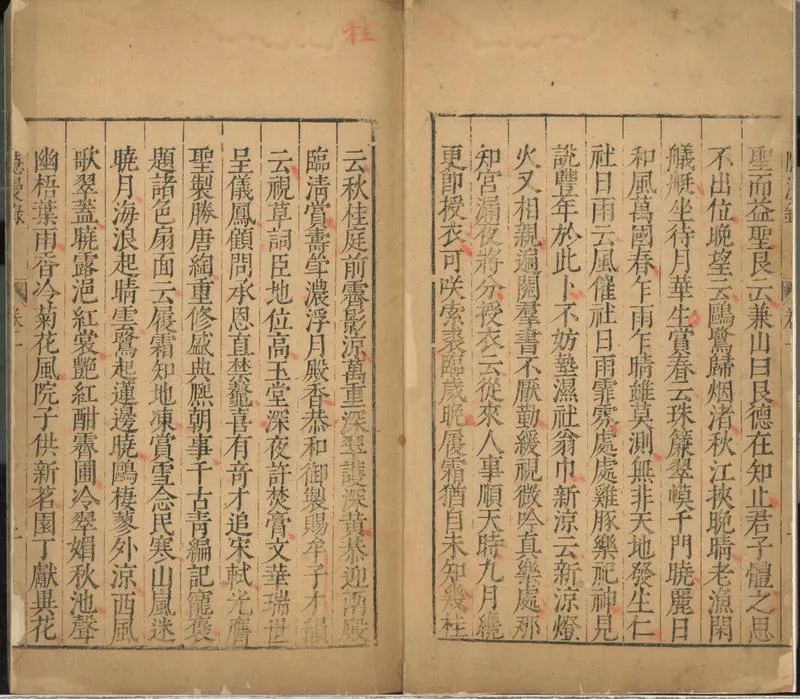 桂
聖而益聖艮云兼山曰艮德在知止君子體之思
不出位晚望云鷗鷺歸烟渚秋江挾晚晴老漁閑
艤艇坐待月華生賞春云珠簾翠幙千門曉麗日
和風萬國春乍雨乍晴雖莫測無非天地發生仁
社日雨云風催社日雨霏雰處處雞豚樂祀神見
說豐年於此卜不妨墊濕社翁巾新涼云新涼燈
火又相親遍閱羣書不厭勤緩視微吟真樂處那
知宮漏夜將分授衣云從來人事順天時九月纔
更即授衣可咲索裘臨歲晚履霜猶自未知幾桂
云秋桂庭前霽影凉萬重深翠護深黃恭迎兩嚴
臨清賞壽斝濃浮月殿香恭和御製賜牟子才韻
云視草詞臣地位高玉堂深夜許焚膏文華瑞世
呈儀鳳顧問承恩直禁鼇喜有奇才追宋軾光膺
聖製勝唐綯重修盛典熈朝事千古青編記寵褒
題諸色扇面云履霜知地凍賞雪念民寒山嵐迷
曉月海浪起晴雲鷺起蓮邊曉鷗棲蓼外涼西風
歌翠蓋曉露浥紅裳艷紅酣霽圃冷翠媚秋池聲
幽梧葉雨香冷菊花風院子供新茗園丁獻異花